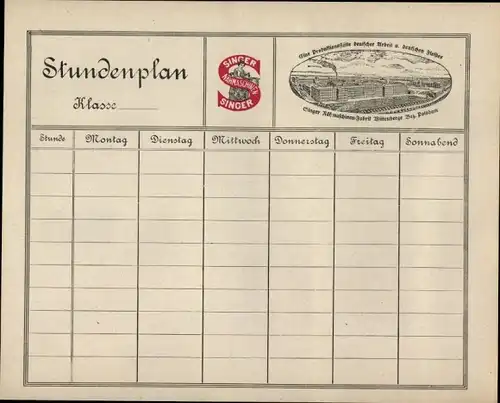 Stundenplan
Klasse
SINGER
NÄHMASCHINEN
SINGER
Eine Produktionsstätte deutscher Arbeit u. deutschen Fleißes
Singer Nähmaschinen-Fabrik Wittenberge Bez. Potsdam
Stunde Montag Dienstag Mittwoch Donnerstag Freitag Sonnabend